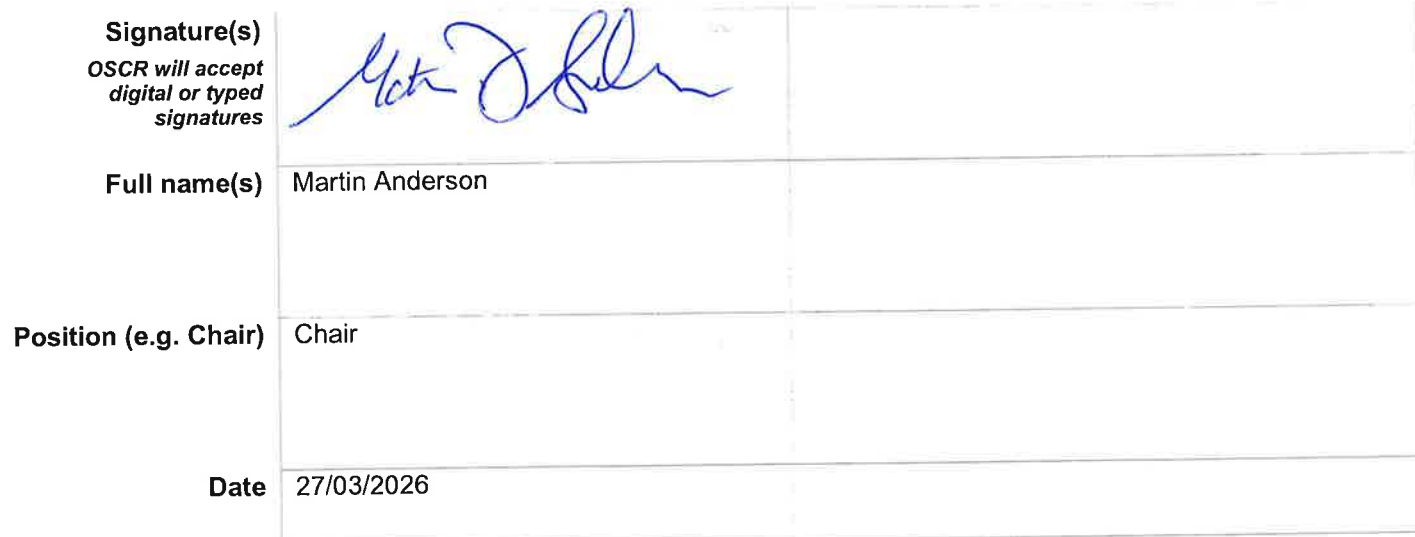 Signature(s)
OSCR will accept
digital or typed
signatures
Full name(s) Martin Anderson
Position (e.g. Chair) Chair
Date 27/03/2026